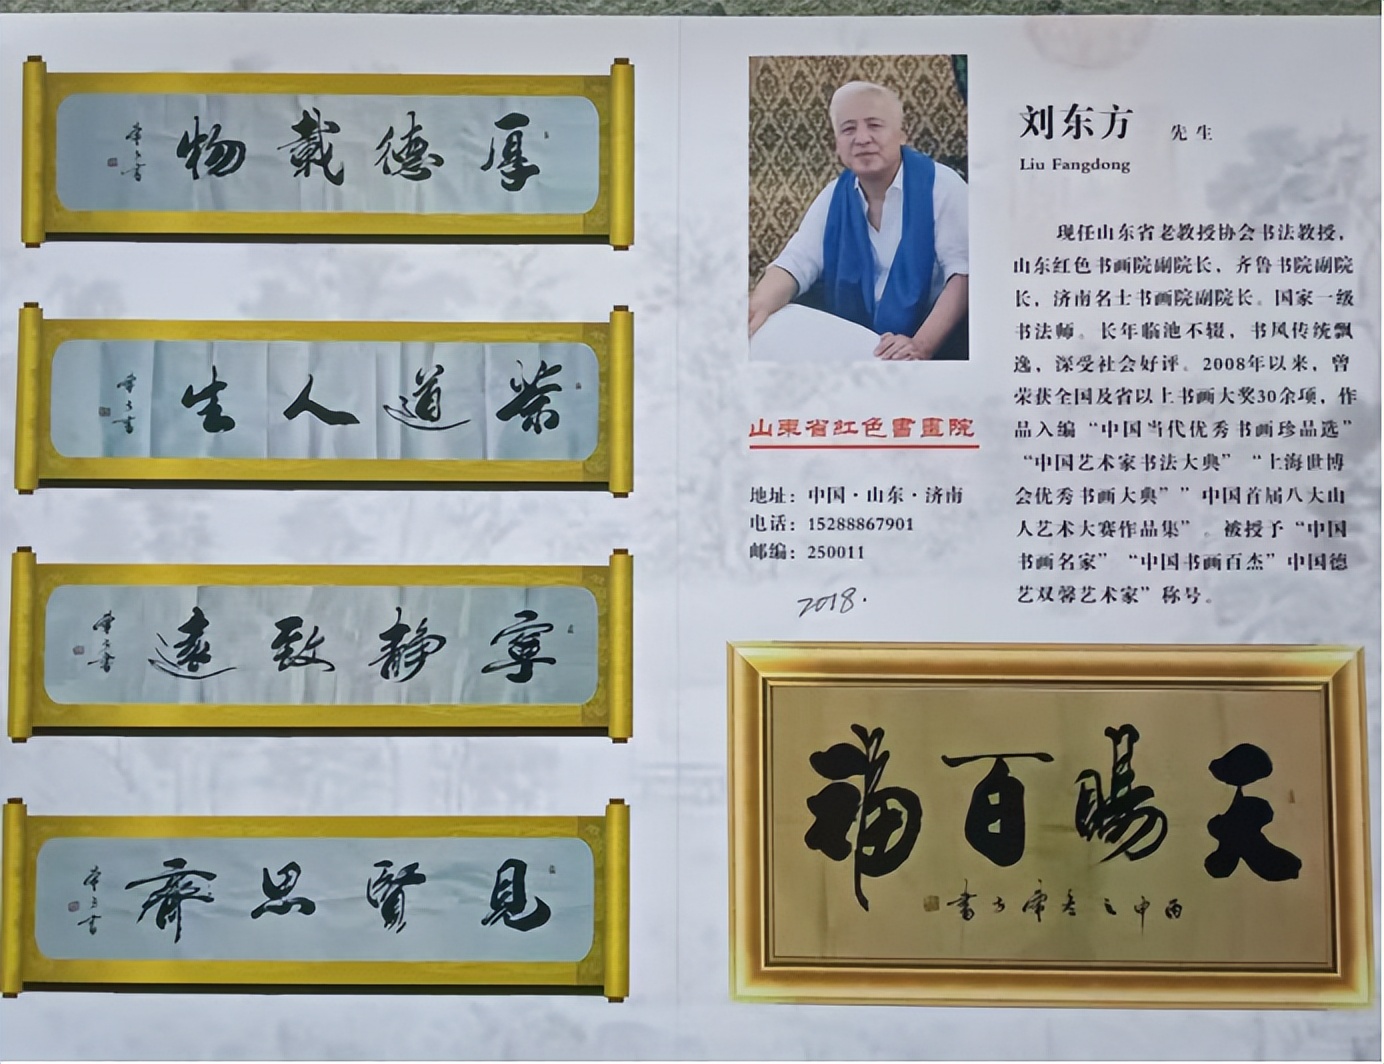 厚德載物
東方書
茶道人生
東方書
寧靜致遠
東方書
見賢思齊
東方書
刘东方 先生
Liu Fangdong
现任山东省老教授协会书法教授，
山东红色书画院副院长，齐鲁书院副院
长，济南名士书画院副院长。国家一级
书法师。长年临池不辍，书风传统飘
逸，深受社会好评。2008年以来，曾
荣获全国及省以上书画大奖30余项，作
品入编“中国当代优秀书画珍品选”
“中国艺术家书法大典”“上海世博
会优秀书画大典””中国首届八大山
人艺术大赛作品集”。被授予“中国
书画名家”“中国书画百杰”中国德
艺双馨艺术家”称号。
山東省紅色書畫院
地址：中国·山东·济南
电话：15288867901
邮编：250011
2018.
天賜百福
丙申之春東方書